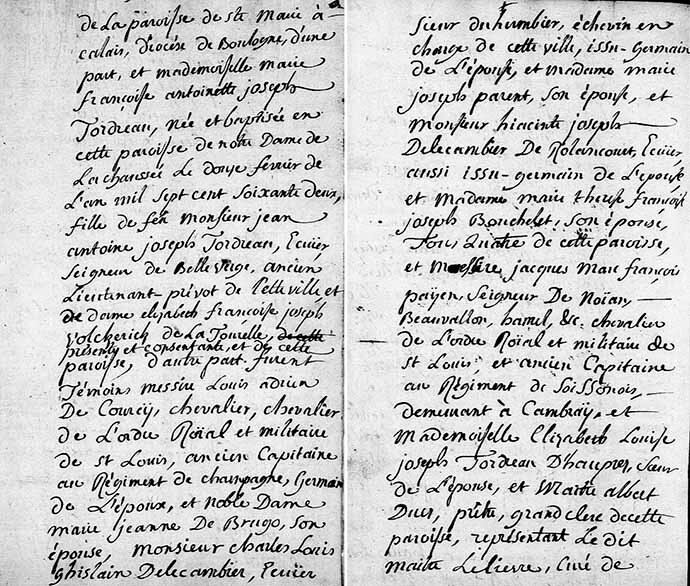 de La paroisse de ste Marie à
calais, diocèse de Boulogne, d'une
part, et mademoiselle marie
françoise antoinette joseph
Tordreau, née et baptisée en
cette paroisse de notre Dame de
La chaussée Le douze fevrier de
L'an mil sept cent soixante deux,
fille de feu monsieur jean
antoine joseph Tordreau, Ecuïer
Seigneur de Belleverge, ancien
Lieutenant-prévot de Cette ville, et
de dame elizabeth françoise joseph
volckerick de La Tourelle, de cette
presente et consentante, et de cette
paroisse, d'autre part. furent
Témoins messire Louis adrien
De Courcÿ, chevalier, chevalier
de L'ordre Roïal et militaire
de st Louis, ancien Capitaine
au Régiment de champagne, Germain
de L'époux, et noble Dame
marie jeanne De Brugo, son
épouse, monsieur charles Louis
Ghislain Delecambier, Ecuïer
Sieur du humbier, échevin en
charge de cette ville, issu-Germain
de L'épouse, et Madame marie
joseph parent, son épouse, et
Monsieur hiacinte joseph
Delecambier De Rolancourt, Ecuïer
aussi issu-germain de L'épouse
et Madame marie therese françoise
joseph Bouchelet, son épouse,
Tous Quatre de cette paroisse,
et Messire jacques Marc françois
païen, Seigneur De Noïan,
Beauvallon, hamel, &c. chevalier
de L'ordre Roïal et militaire de
st Louis, et ancien Capitaine
au Régiment de Soissonois,
demeurant à Cambray, et
Mademoiselle Elizabeth Louise
joseph Tordreau D'haupres, Sœur
de L'épouse, et Maitre albert
prêtre, grand clerc de cette
paroisse, représentant Le dit
maitre Lelievre, Curé de